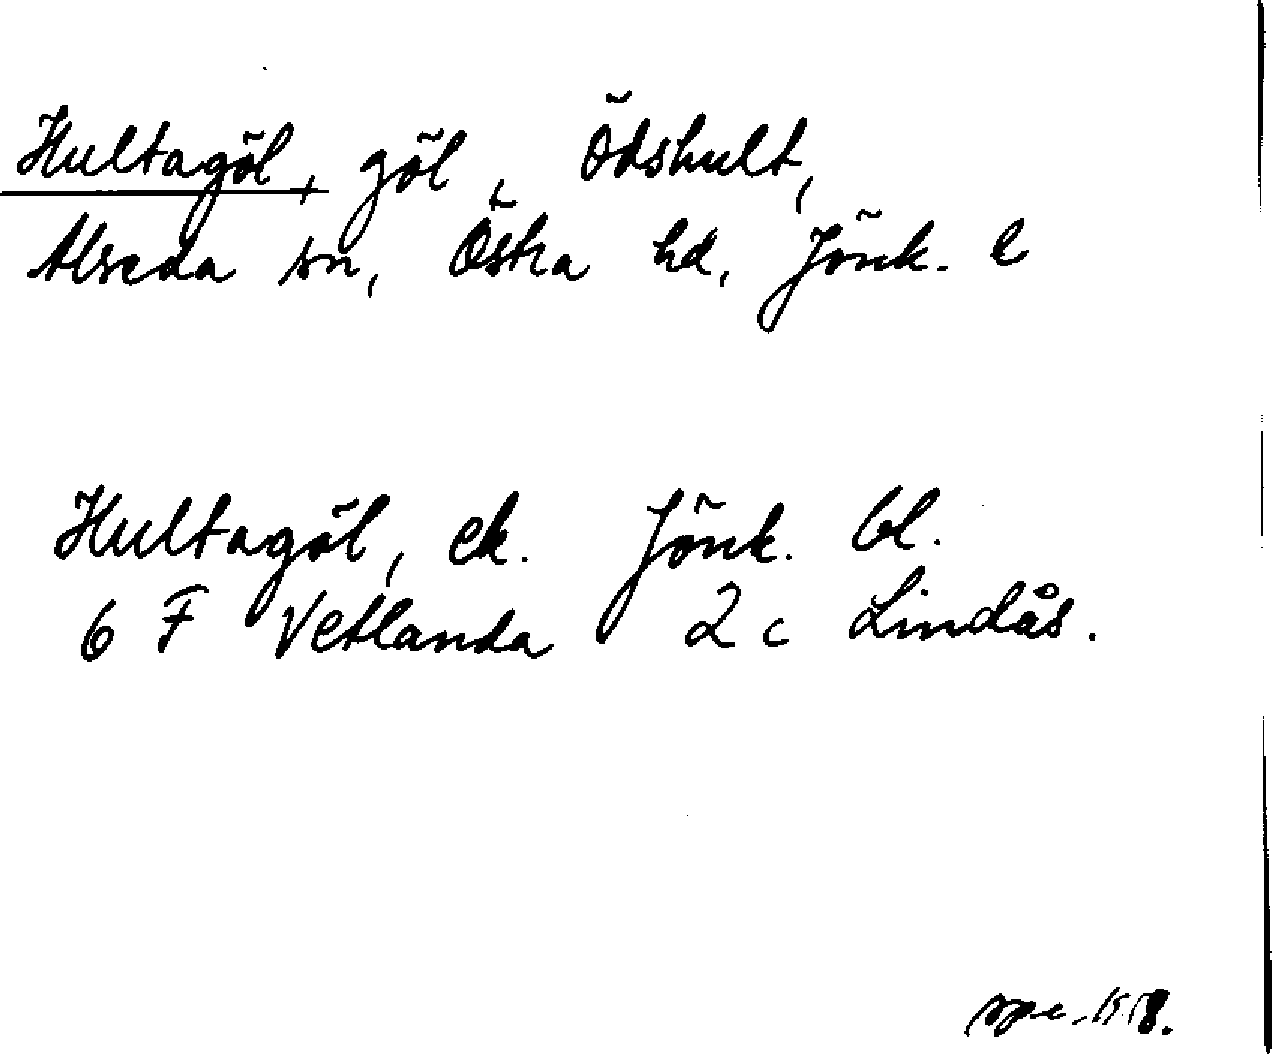 Hultagöl, göl, Ödshult,
Alseda sn, Östra hd, Jönk. l
Hultagöl, ek. Jönk. bl.
6 F Vetlanda 2 c Lindås.